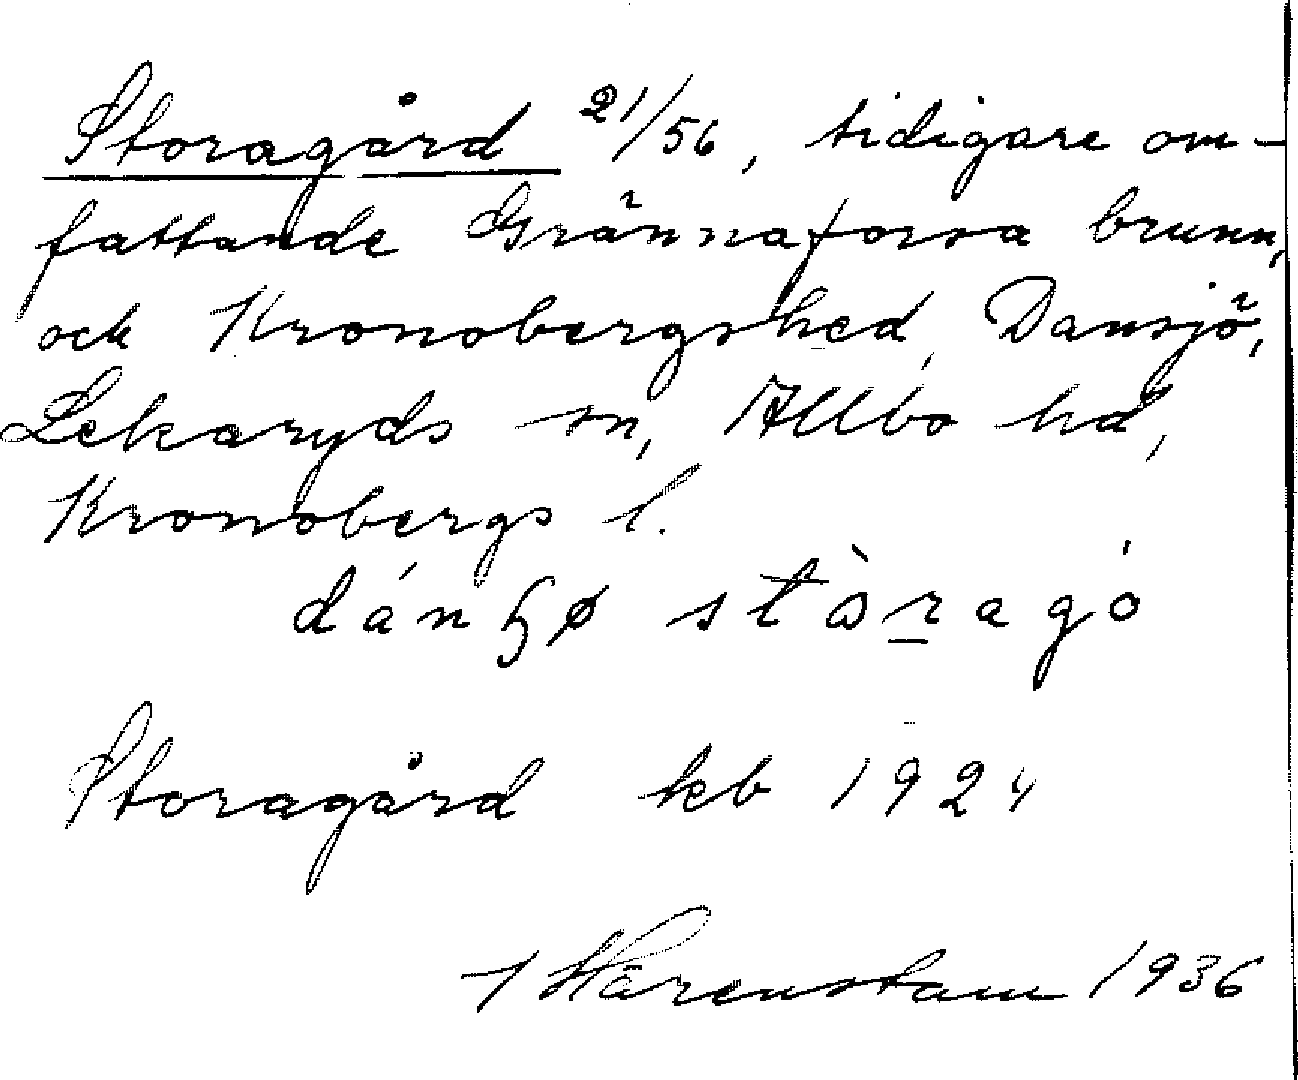 Storagård 21/56, tidigare om-
fattande Grännaforsa brunn,
och Kronobergshed, Dansjö,
Lekaryds sn, Allbo hd,
Kronobergs l.
Storagård kb 1924
Härenstam 1936